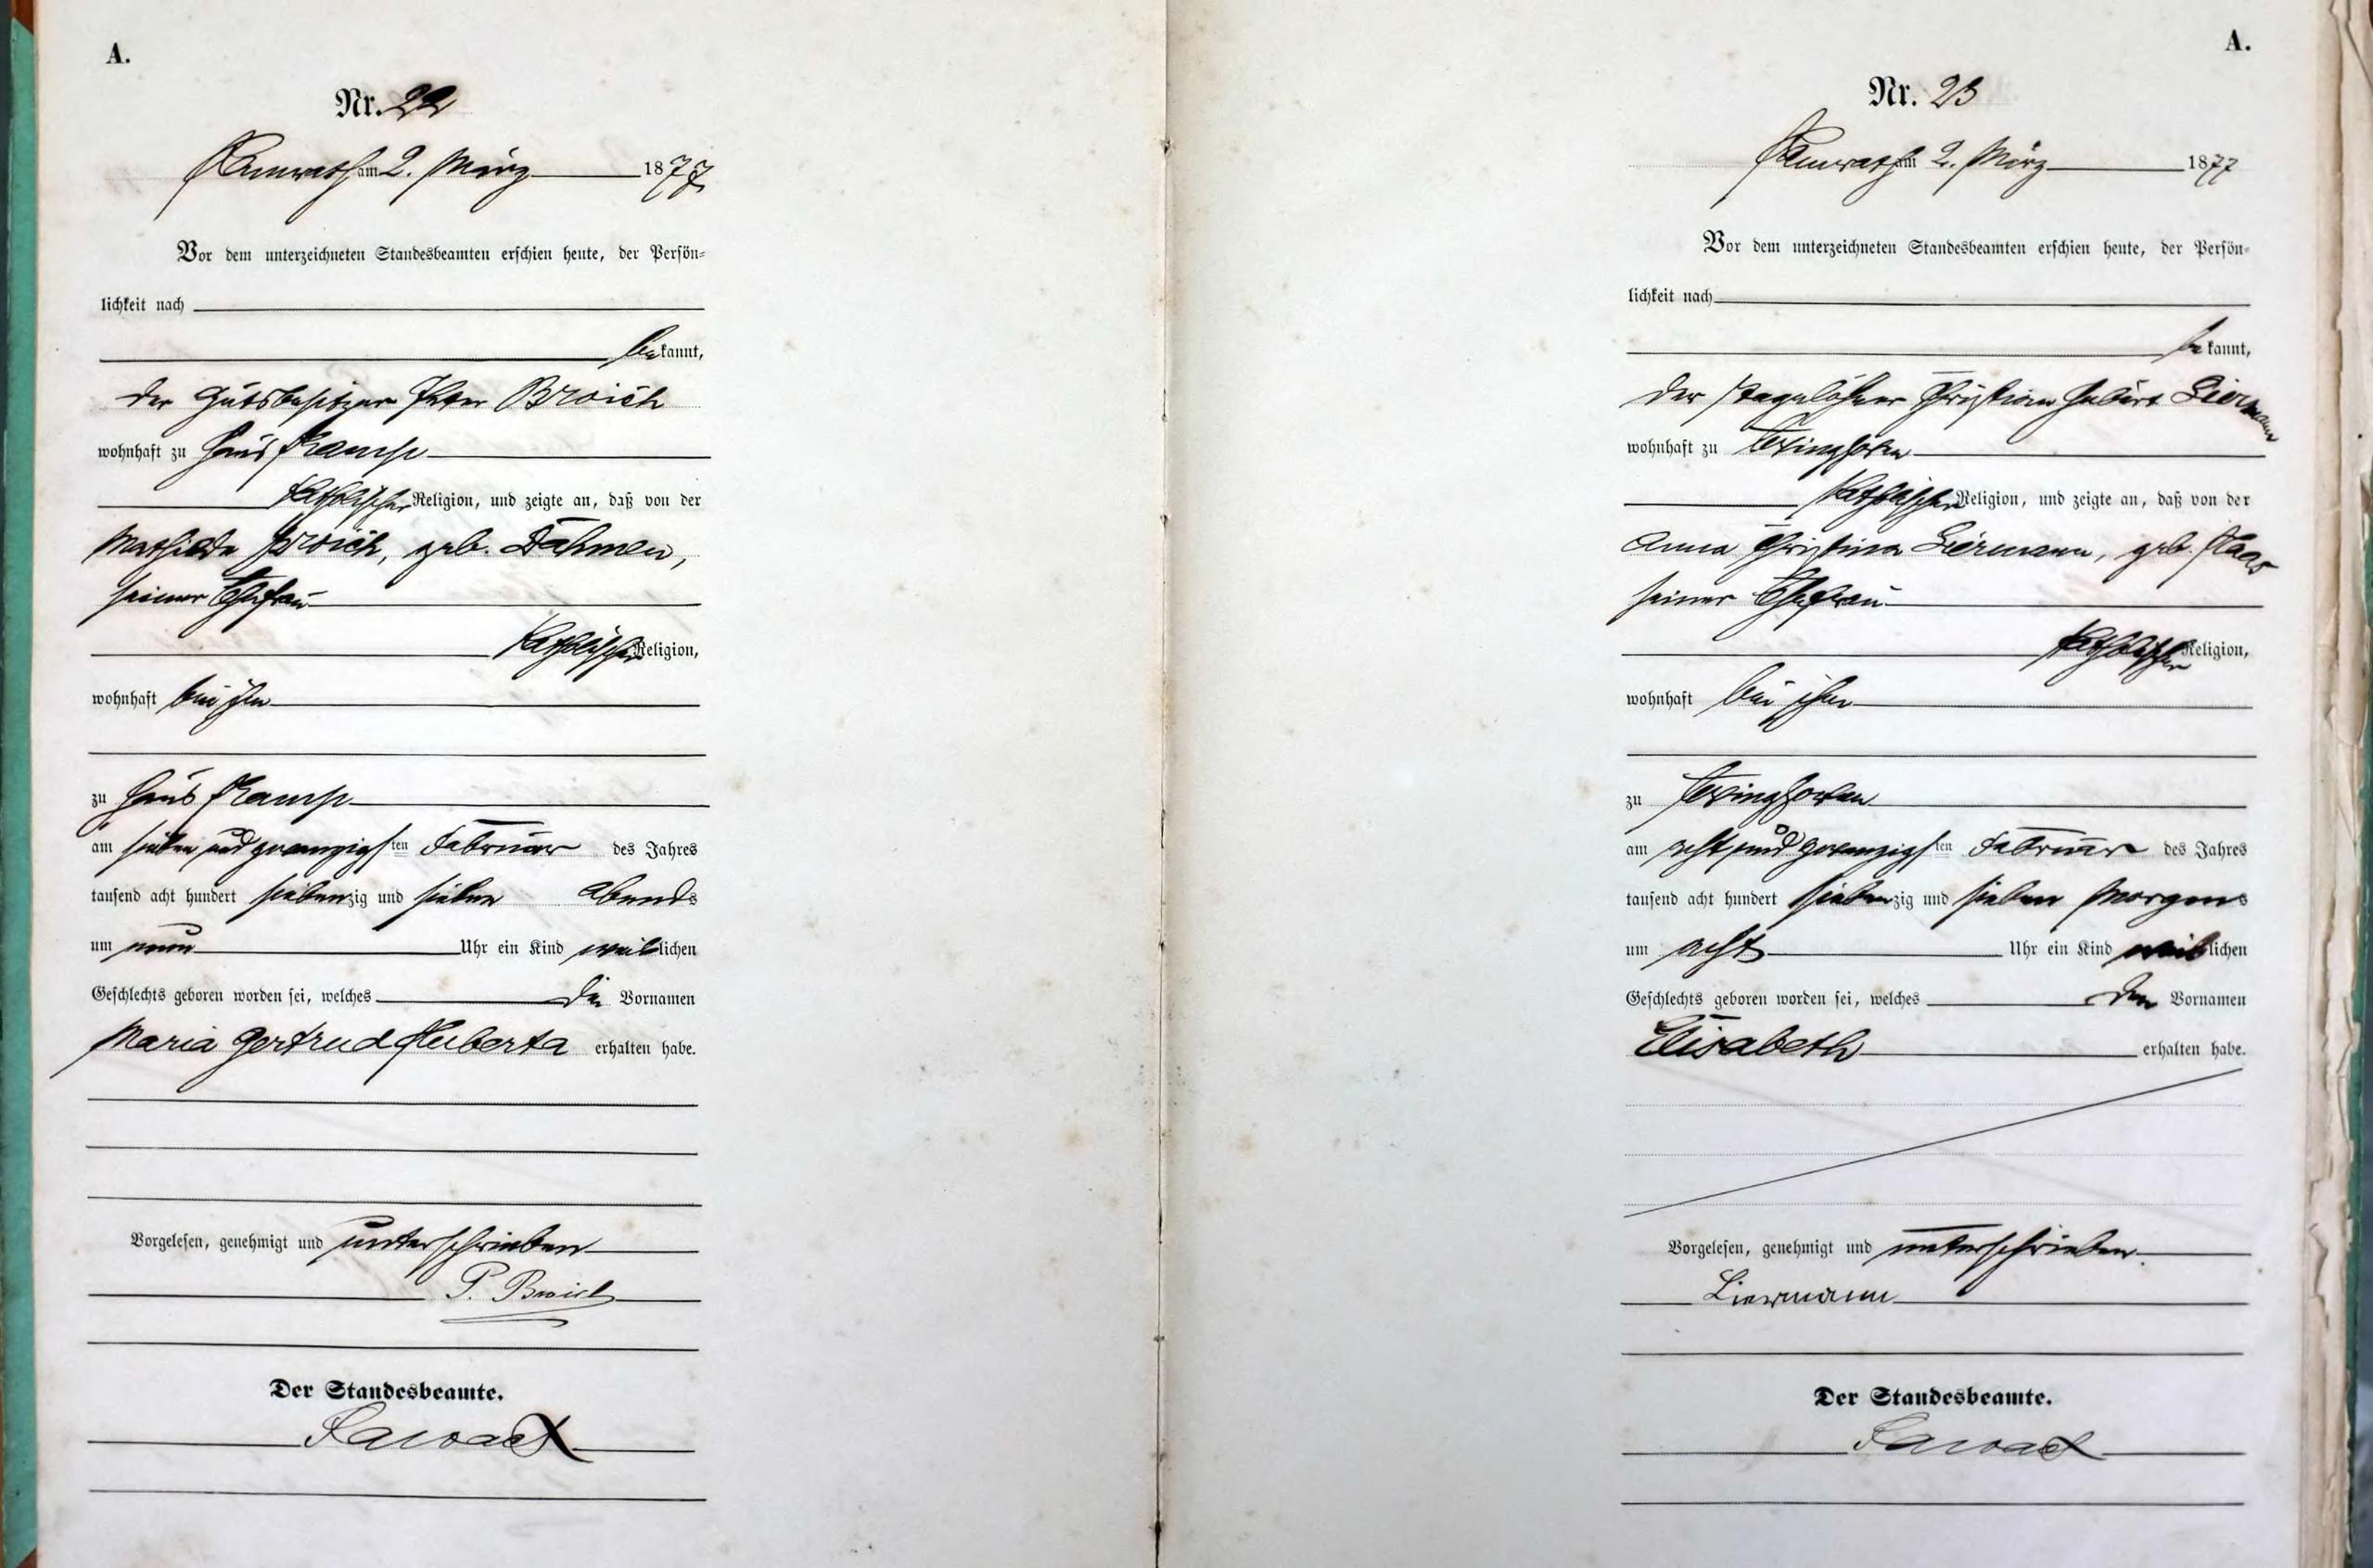 A.
Nr. 22
Ramrath am 2. März 1877
Vor dem unterzeichneten Standesbeamten erschien heute, der Persön=
lichkeit nach
bekannt,
der Gutsbesitzer Peter Broich
wohnhaft zu Haus Kamp
katholischer Religion, und zeigte an, daß von der
Mathilde Broich, geb. Dahmen,
seiner Ehefrau
katholischer Religion,
wohnhaft bei ihm
zu Haus Kamp
am sieben und zwanzigsten Februar des Jahres
tausend acht hundert siebenzig und sieben Abends
um neun Uhr ein Kind weiblichen
Geschlechts geboren worden sei, welches die Vornamen
Maria Gertrud Huberta erhalten habe.
Vorgelesen, genehmigt und unterschrieben
P. Broich
Der Standesbeamte.
A.
Nr. 23
Ramrath am 2. März 1877
Vor dem unterzeichneten Standesbeamten erschien heute, der Persön=
lichkeit nach
bekannt,
der Tagelöhner Christian Hubert Liermann
wohnhaft zu Evinghoven
katholischer Religion, und zeigte an, daß von der
Anna Christina Liermann, geb. Haas
seiner Ehefrau
katholischer Religion,
wohnhaft bei ihm
zu Evinghoven
am acht und zwanzigsten Februar des Jahres
tausend acht hundert siebenzig und sieben Morgens
um acht Uhr ein Kind weiblichen
Geschlechts geboren worden sei, welches den Vornamen
Elisabeth erhalten habe.
Vorgelesen, genehmigt und unterschrieben.
Liermann
Der Standesbeamte.